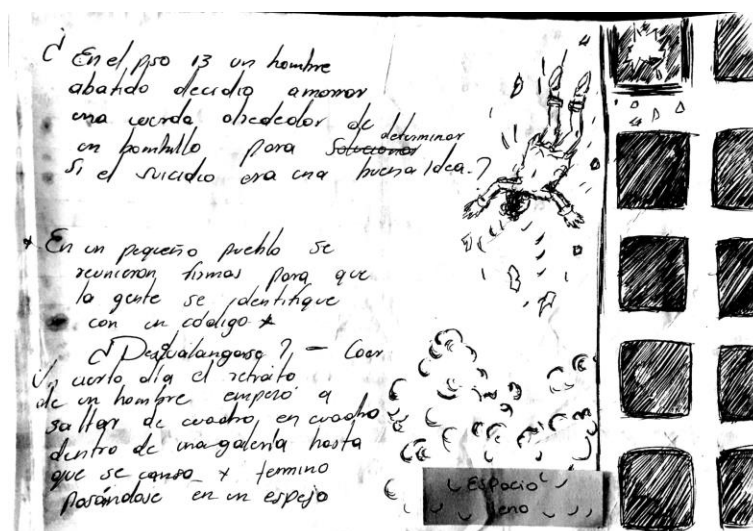 ¿ En el piso 13 un hombre
abatido decidia amarrar
una cuerda alrededor de
un bombillo para Solucionar determinar
si el suicidio era una buena idea.?
* En un pequeño pueblo se
reunieron firmas para que
la gente se identifique
con un código *
¿ Desgualangarse? — Caer
Un cierto día el retrato
de un hombre empezó a
saltar de cuadro en cuadro
dentro de una galería hasta
que se canso y termino
posándose en un espejo
Espacio